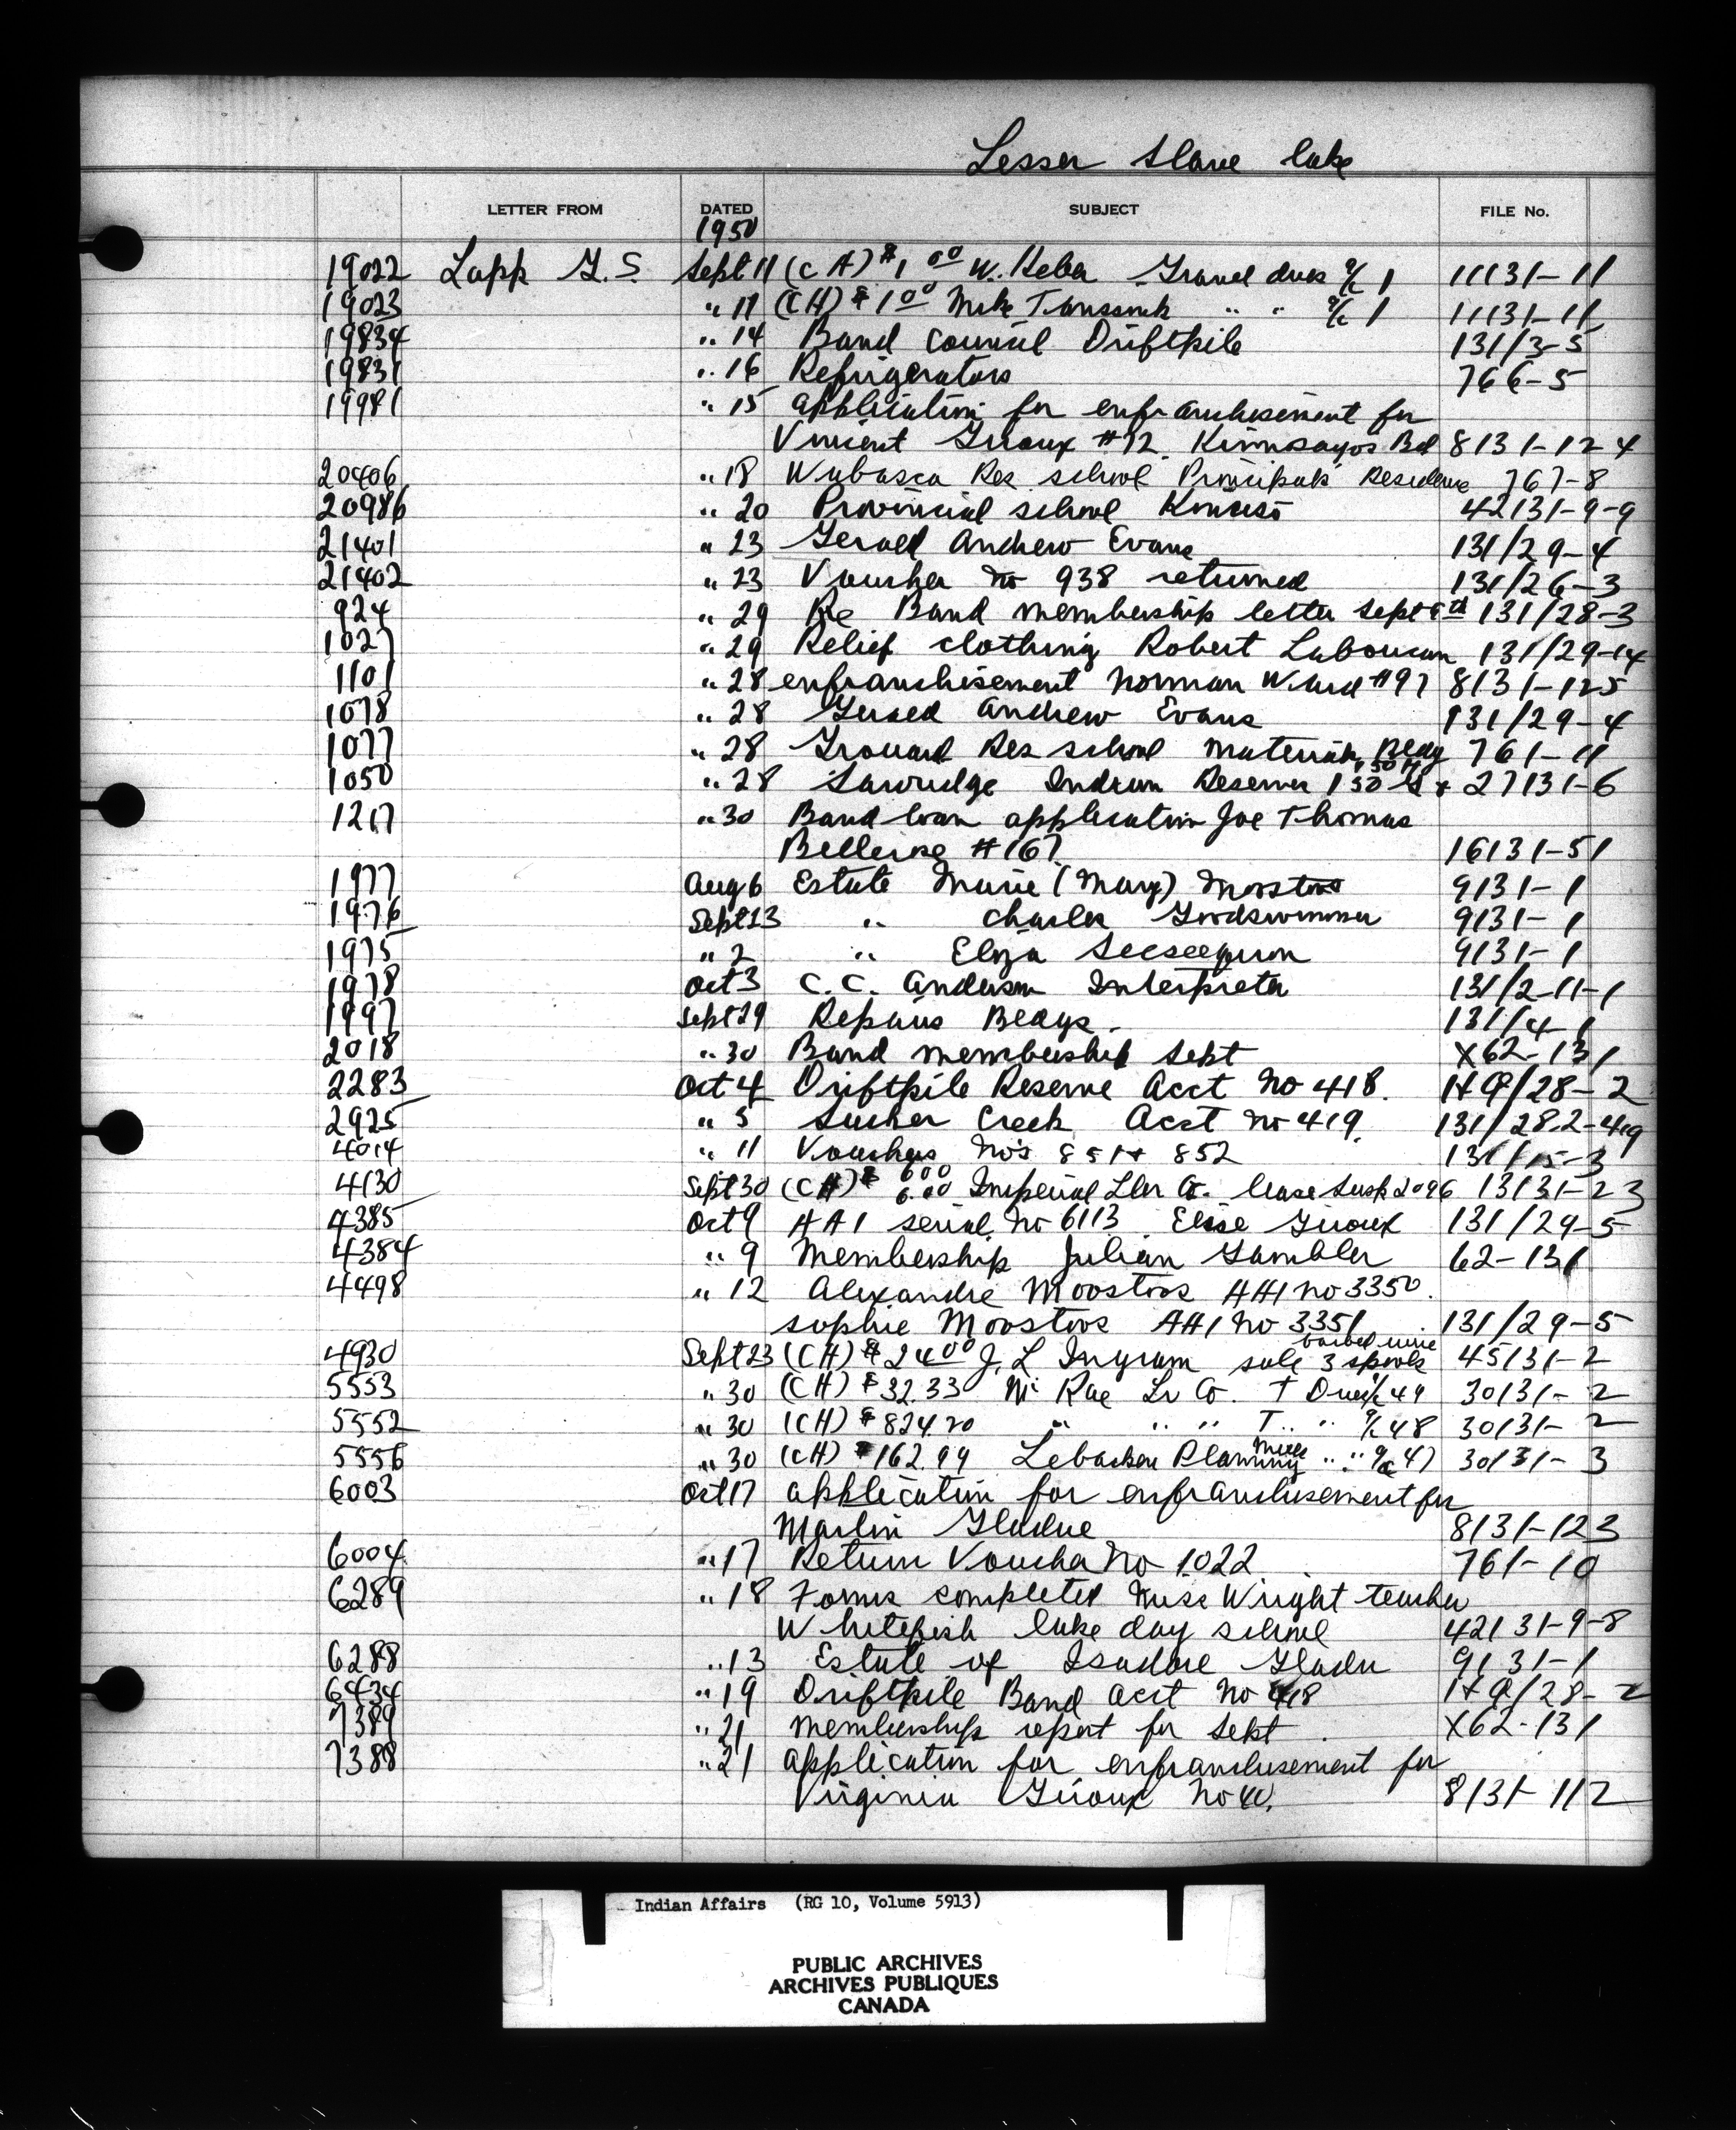 Lesser Slave lake
LETTER FROM DATED SUBJECT FILE No.
1950
19022 Lapp G. S Sept 11 (CH) $1 00 W. Gravel dues a/c 1 11131-11
19023 " 11 (CH) $1 00 Mike " " a/c 1 11131-11
19834 " 14 Band Council Driftpile 131/3-5
19831 " 16 Refrigerators 766-5
19981 " 15 application for enfranchisement for
Vincent Giroux #72 Bd 8131-124
20406 " 18 Wabasca Res. school Principals Residence 767-8
20986 " 20 Provincial school Kinuso 42131-9-9
21401 " 23 Gerald Andrew Evans 131/29-4
21402 " 23 Voucher no 938 returned 131/26-3
924 " 29 Re Band membership letter Sept th 131/28-3
1027 " 29 Relief clothing Robert Laboucan 131/29-14
1101 " 28 enfranchisement Norman Ward #97 8131-125
1078 " 28 Gerald Andrew Evans 131/29-4
1077 " 28 Grouard Res school materials Bldg 761-11
1050 " 28 Sawridge Indian Reserve 150 G + 150 H 27131-6
1217 " 30 Band loan application Joe Thomas
Bellerose #167 16131-51
1977 Aug 6 Estate Marie (Mary) Moostoos 9131-1
1976 Sept 23 " Charles Goodswimmer 9131-1
1975 " 2 " Eliza Seeseequon 9131-1
1978 Oct 3 C. C. Anderson Interpreter 131/2-11-1
1997 Sept 29 Repairs Bldgs. 131/4-1
2018 " 30 Band membership Sept X62-131
2283 Oct 4 Driftpile Reserve Acct No 418. H9/28-2
2925 " 5 Sucker Creek Acct no 419. 131/28.2-419
4014 " 11 Vouchers No's 851 + 852 131/15-3
4130 Sept 30 (CH) $ 6.00 6.00 Imperial Co. lease Susp 2096 13131-23
4385 Oct 9 HA1 serial No 6113 Elise Giroux 131/29-5
4384 " 9 Membership Julian Gambler 62-131
4498 " 12 Alexandre Moostoos HA1 no 3350.
Sophie Moostoos HA1 no 3351 131/29-5
4930 Sept 23 (CH) $24 00 J. L Ingram sale 3 spools barbed wire 45131-2
5553 " 30 (CH) $32.33 Mc Rae Lr Co. T Dues a/c 49 30131-2
5552 " 30 (CH) $824.20 " " " T " a/c 48 30131-2
5556 " 30 (CH) $162.99 Planning Mills " " a/c 47 30131-3
6003 Oct 17 application for enfranchisement for
Martin Gladue 8131-123
6004 " 17 Return Voucher No 1022 761-10
6289 " 18 Forms completed Miss Wright teacher
Whitefish lake day school 42131-9-8
6288 " 13 Estate of Isadore Gladu 9131-1
6434 " 19 Driftpile Band acct no 418 H9/28-2
7389 " 21 membership report for Sept. X62-131
7388 " 21 application for enfranchisement for
Virginia Giroux No 40. 8131-112
Indian Affairs (RG 10, Volume 5913)
PUBLIC ARCHIVES
ARCHIVES PUBLIQUES
CANADA